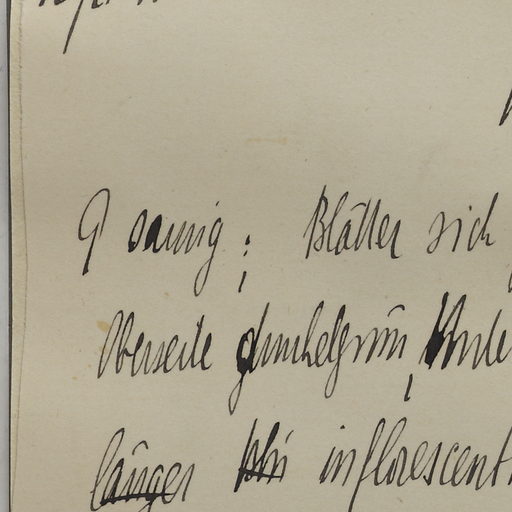 samig; Blätter sich
Oberseite dunkelgrün, Unte
länger inflorescent